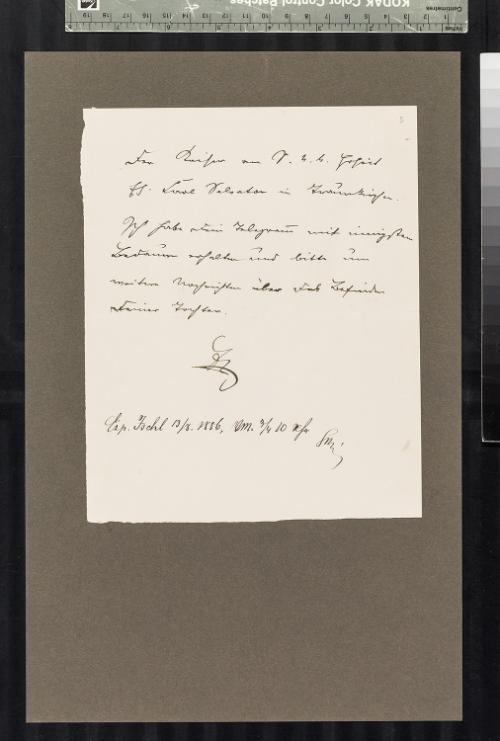 KODAK Color Control Patches
Centimetres
Der Kaiser an S. k. k. Hoheit
EH. Karl Salvator in Traunkirchen.
Ich habe Dein Telegram mit innigstem
Bedauern erhalten und bitte um
weitere Nachrichten über das Befinden
Deiner Tochter.
Exp. Ischl 13/8. 1886, Vm. 3/4 10 Uhr